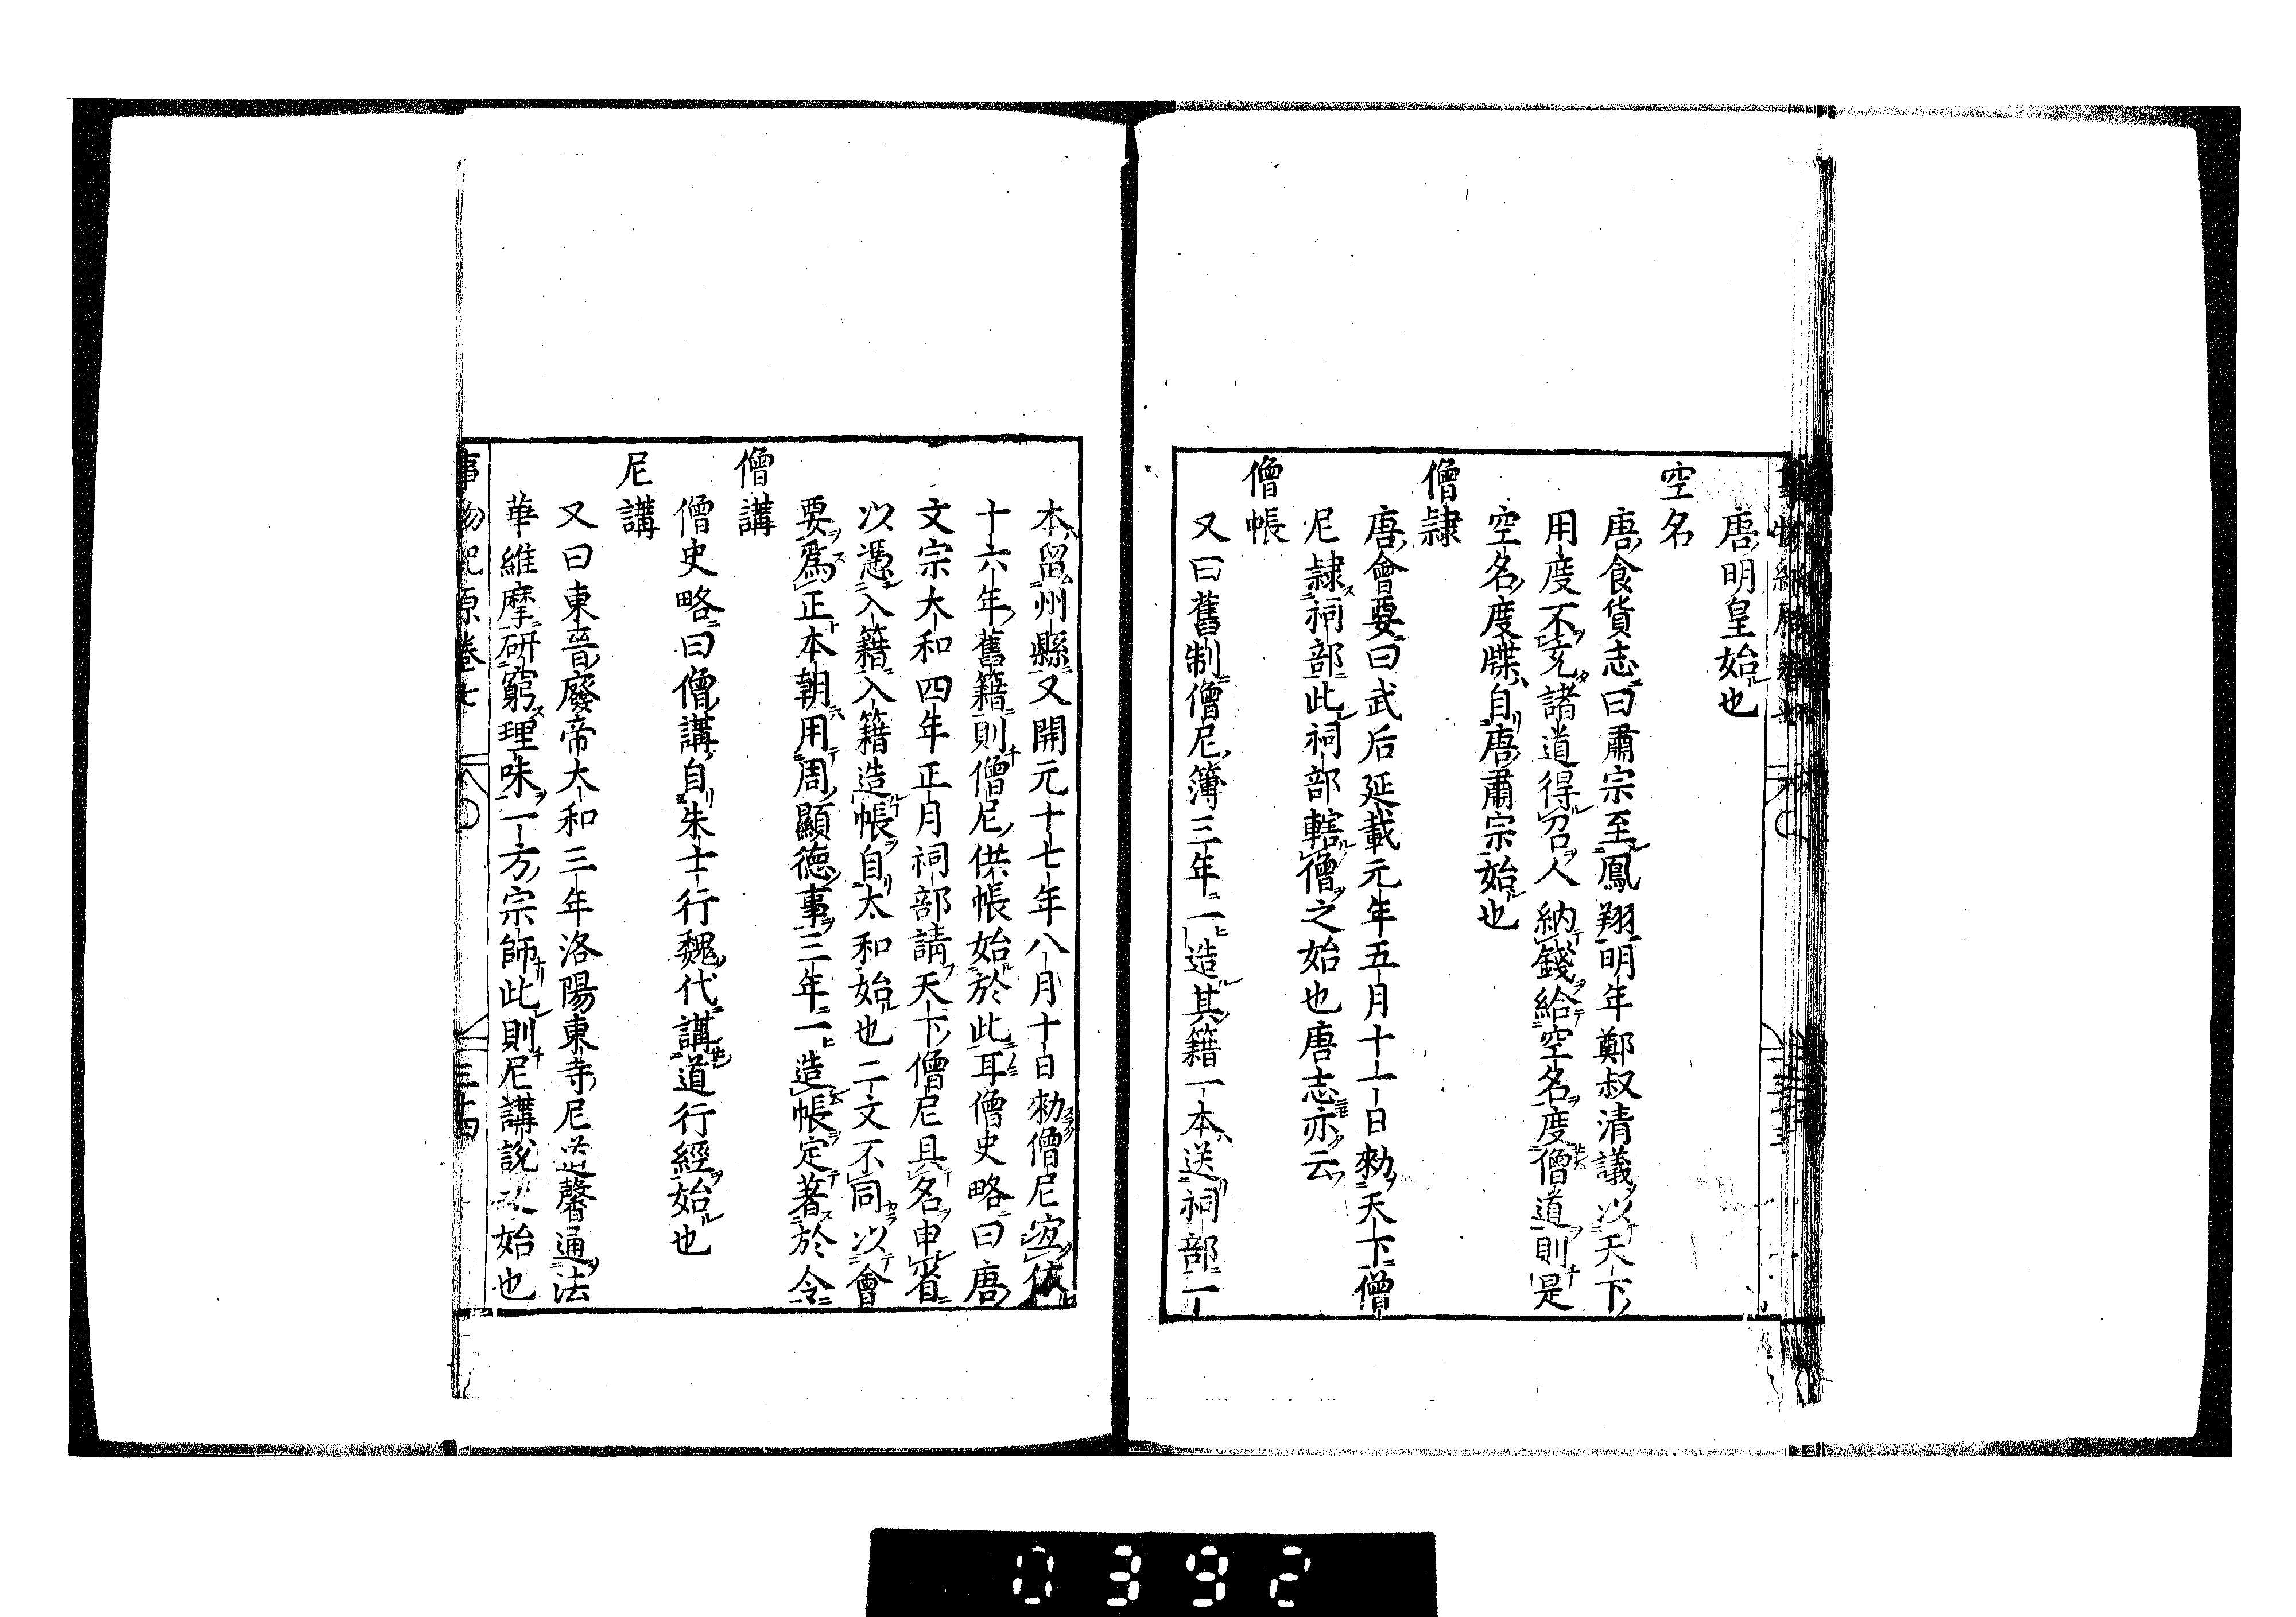 唐明皇始也
空名
唐食貨志曰肅宗至鳳翔明年鄭叔清議以天下
用度不充諸道得召人納錢給空名度僧道則是
空名度牒自唐肅宗始也
僧隷
唐會要曰武后延載元年五月十一日勑天下僧
尼隷祠部此祠部轄僧之始也唐志亦云
僧帳
又曰舊制僧尼簿三年一造其籍一本送祠部一
本留州縣又開元十七年八月十日勑僧尼宜依
十六年舊籍則僧尼供帳始於此耳僧史略曰唐
文宗太和四年正月祠部請天下僧尼具名申省
以憑入籍入籍造帳自太和始也二文不同以會
要爲正本朝用周顯德事三年一造帳定著於令
僧講
僧史略曰僧講自朱士行魏代講道行經始也
尼講
又曰東晉廢帝太和三年洛陽東寺尼道馨通法
華維摩研窮理味一方宗師此則尼講說之始也
事物紀原卷七
三十四
0392